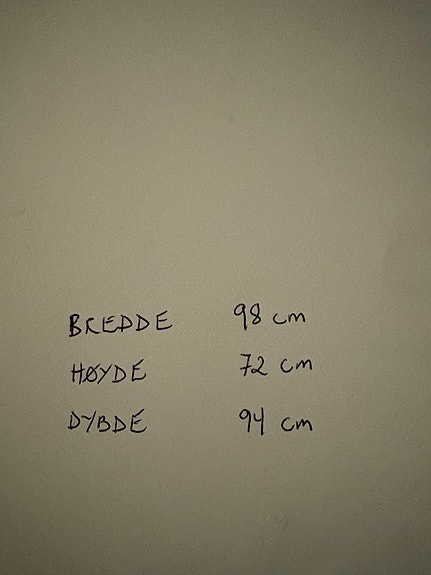 BREDDE 98 cm
HØYDE 72 cm
DYBDE 94 cm